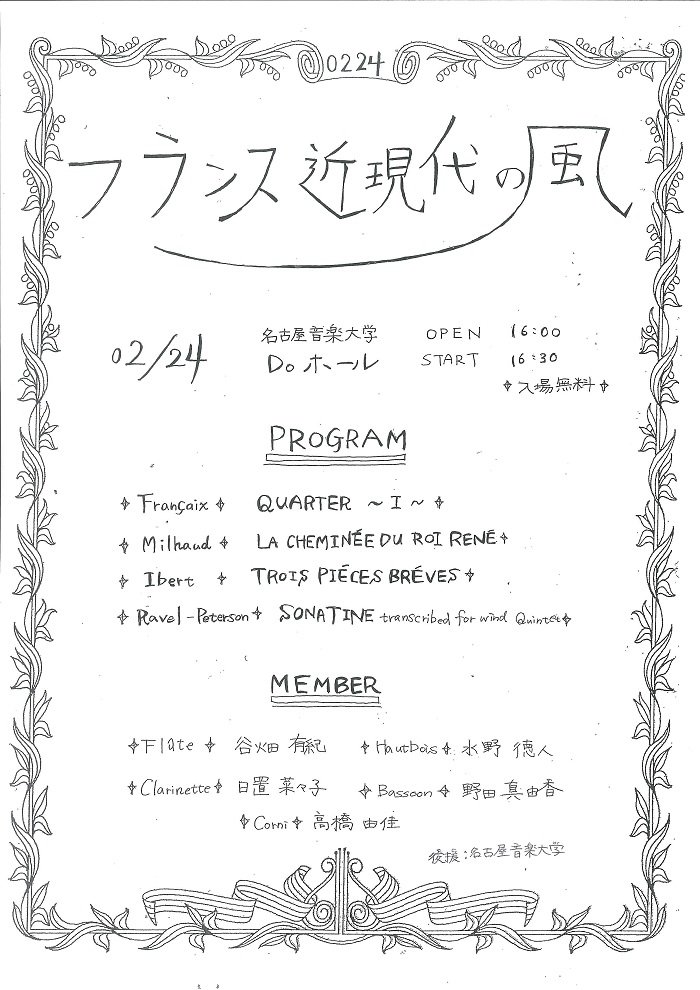 0224
フランス近現代の風
02/24
名古屋音楽大学 OPEN 16:00
Doホール START 16:30
入場無料
PROGRAM
Françaix QUARTER ～I～
Milhaud LA CHEMINÉE DU ROI RENÉ
Ibert TROIS PIÉCES BRÉVES
Ravel-Peterson SONATINE transcribed for wind Quintet
MEMBER
Flûte 谷畑 有紀 HautBois 水野 徳人
Clarinette 日置 菜々子 Bassoon 野田 真由香
Corni 高橋 由佳
後援:名古屋音楽大学